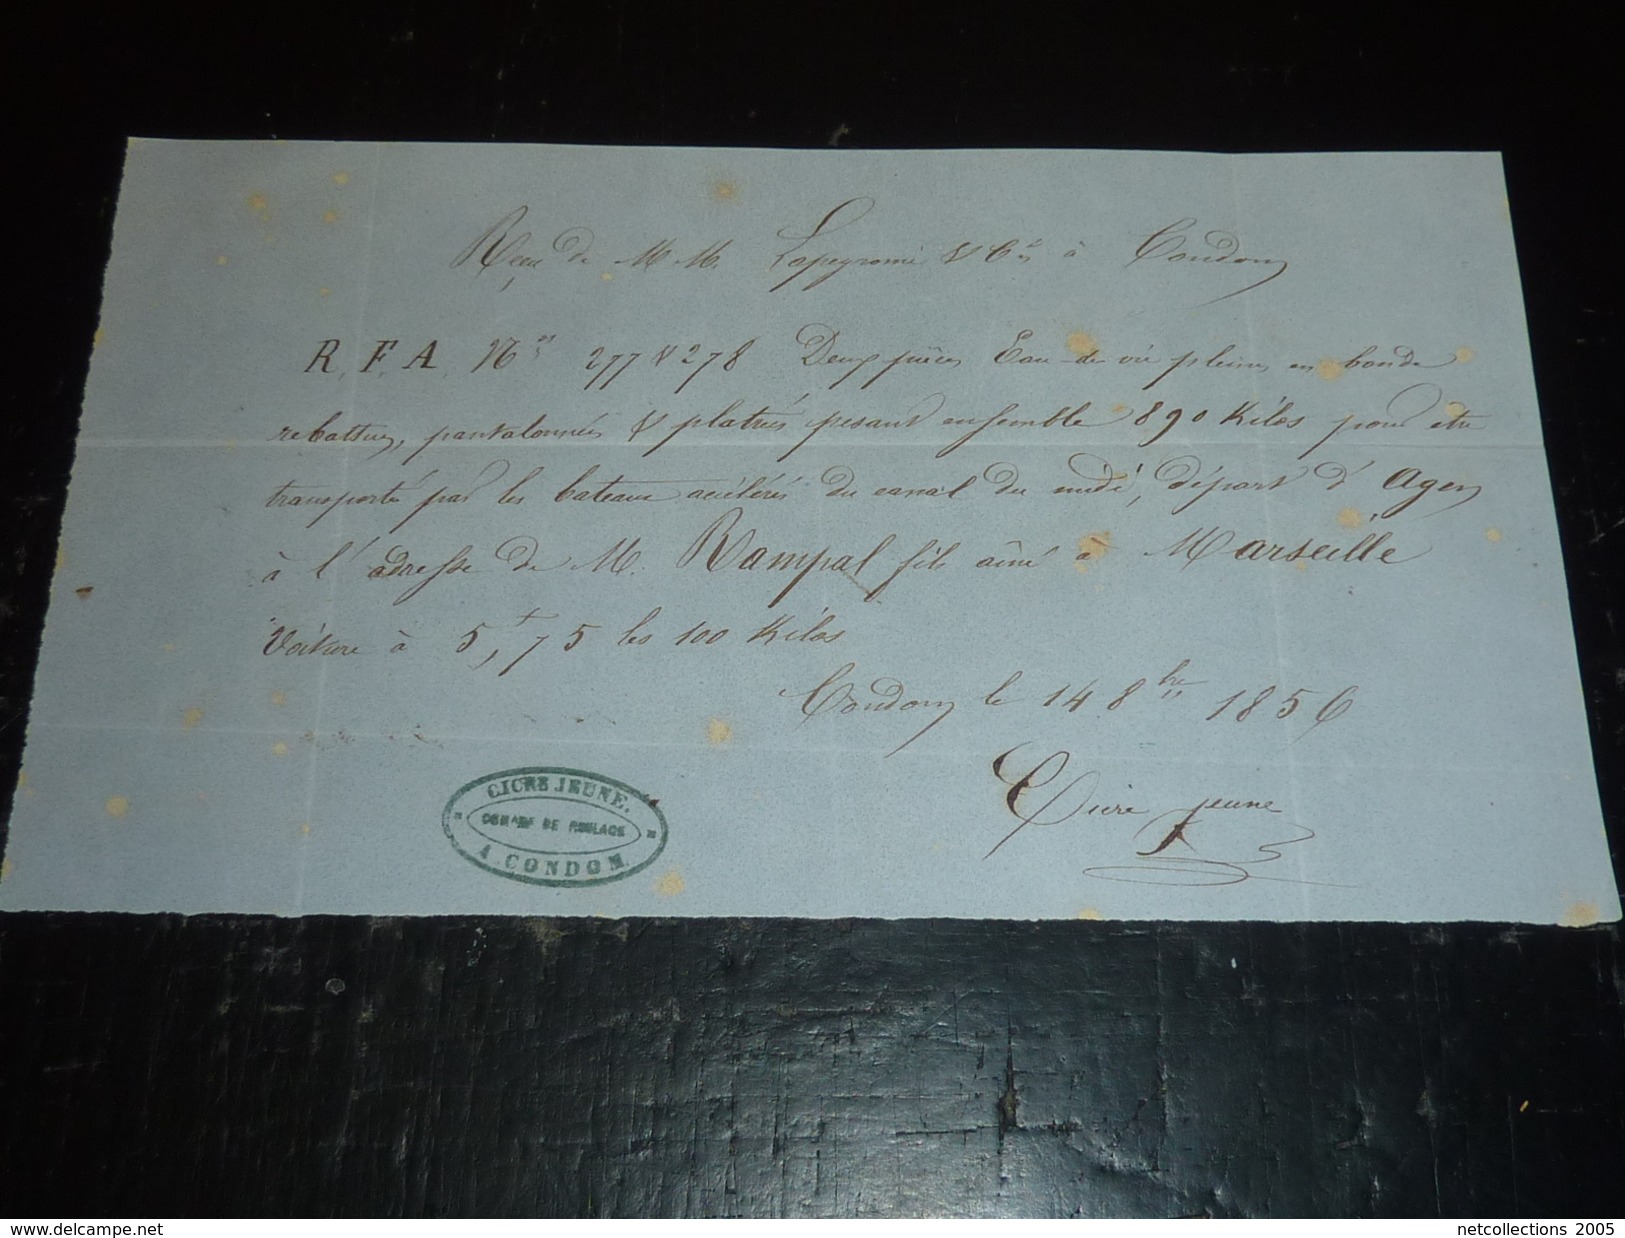 Reçu de M M. Lapeyronie & Cie à Condom
R. F. A. Nos 277 & 278 Deux pièces Eau-de vie pleines en bonde
rebattues, pantalonnées & platrées pesant ensemble 890 Kilos pour être
transporté par les bateaux accélérés du canal du midi, départ d'Agen
à l'adresse de M. Rampal fils ainé à Marseille
Voiture à 5,f 75 les 100 Kilos
Condom le 14 8bre 1856
Cicre jeune
CICRE JEUNE.
COMre DE ROULAGE
A CONDOM.
www.delcampe.net
netcollections 2005